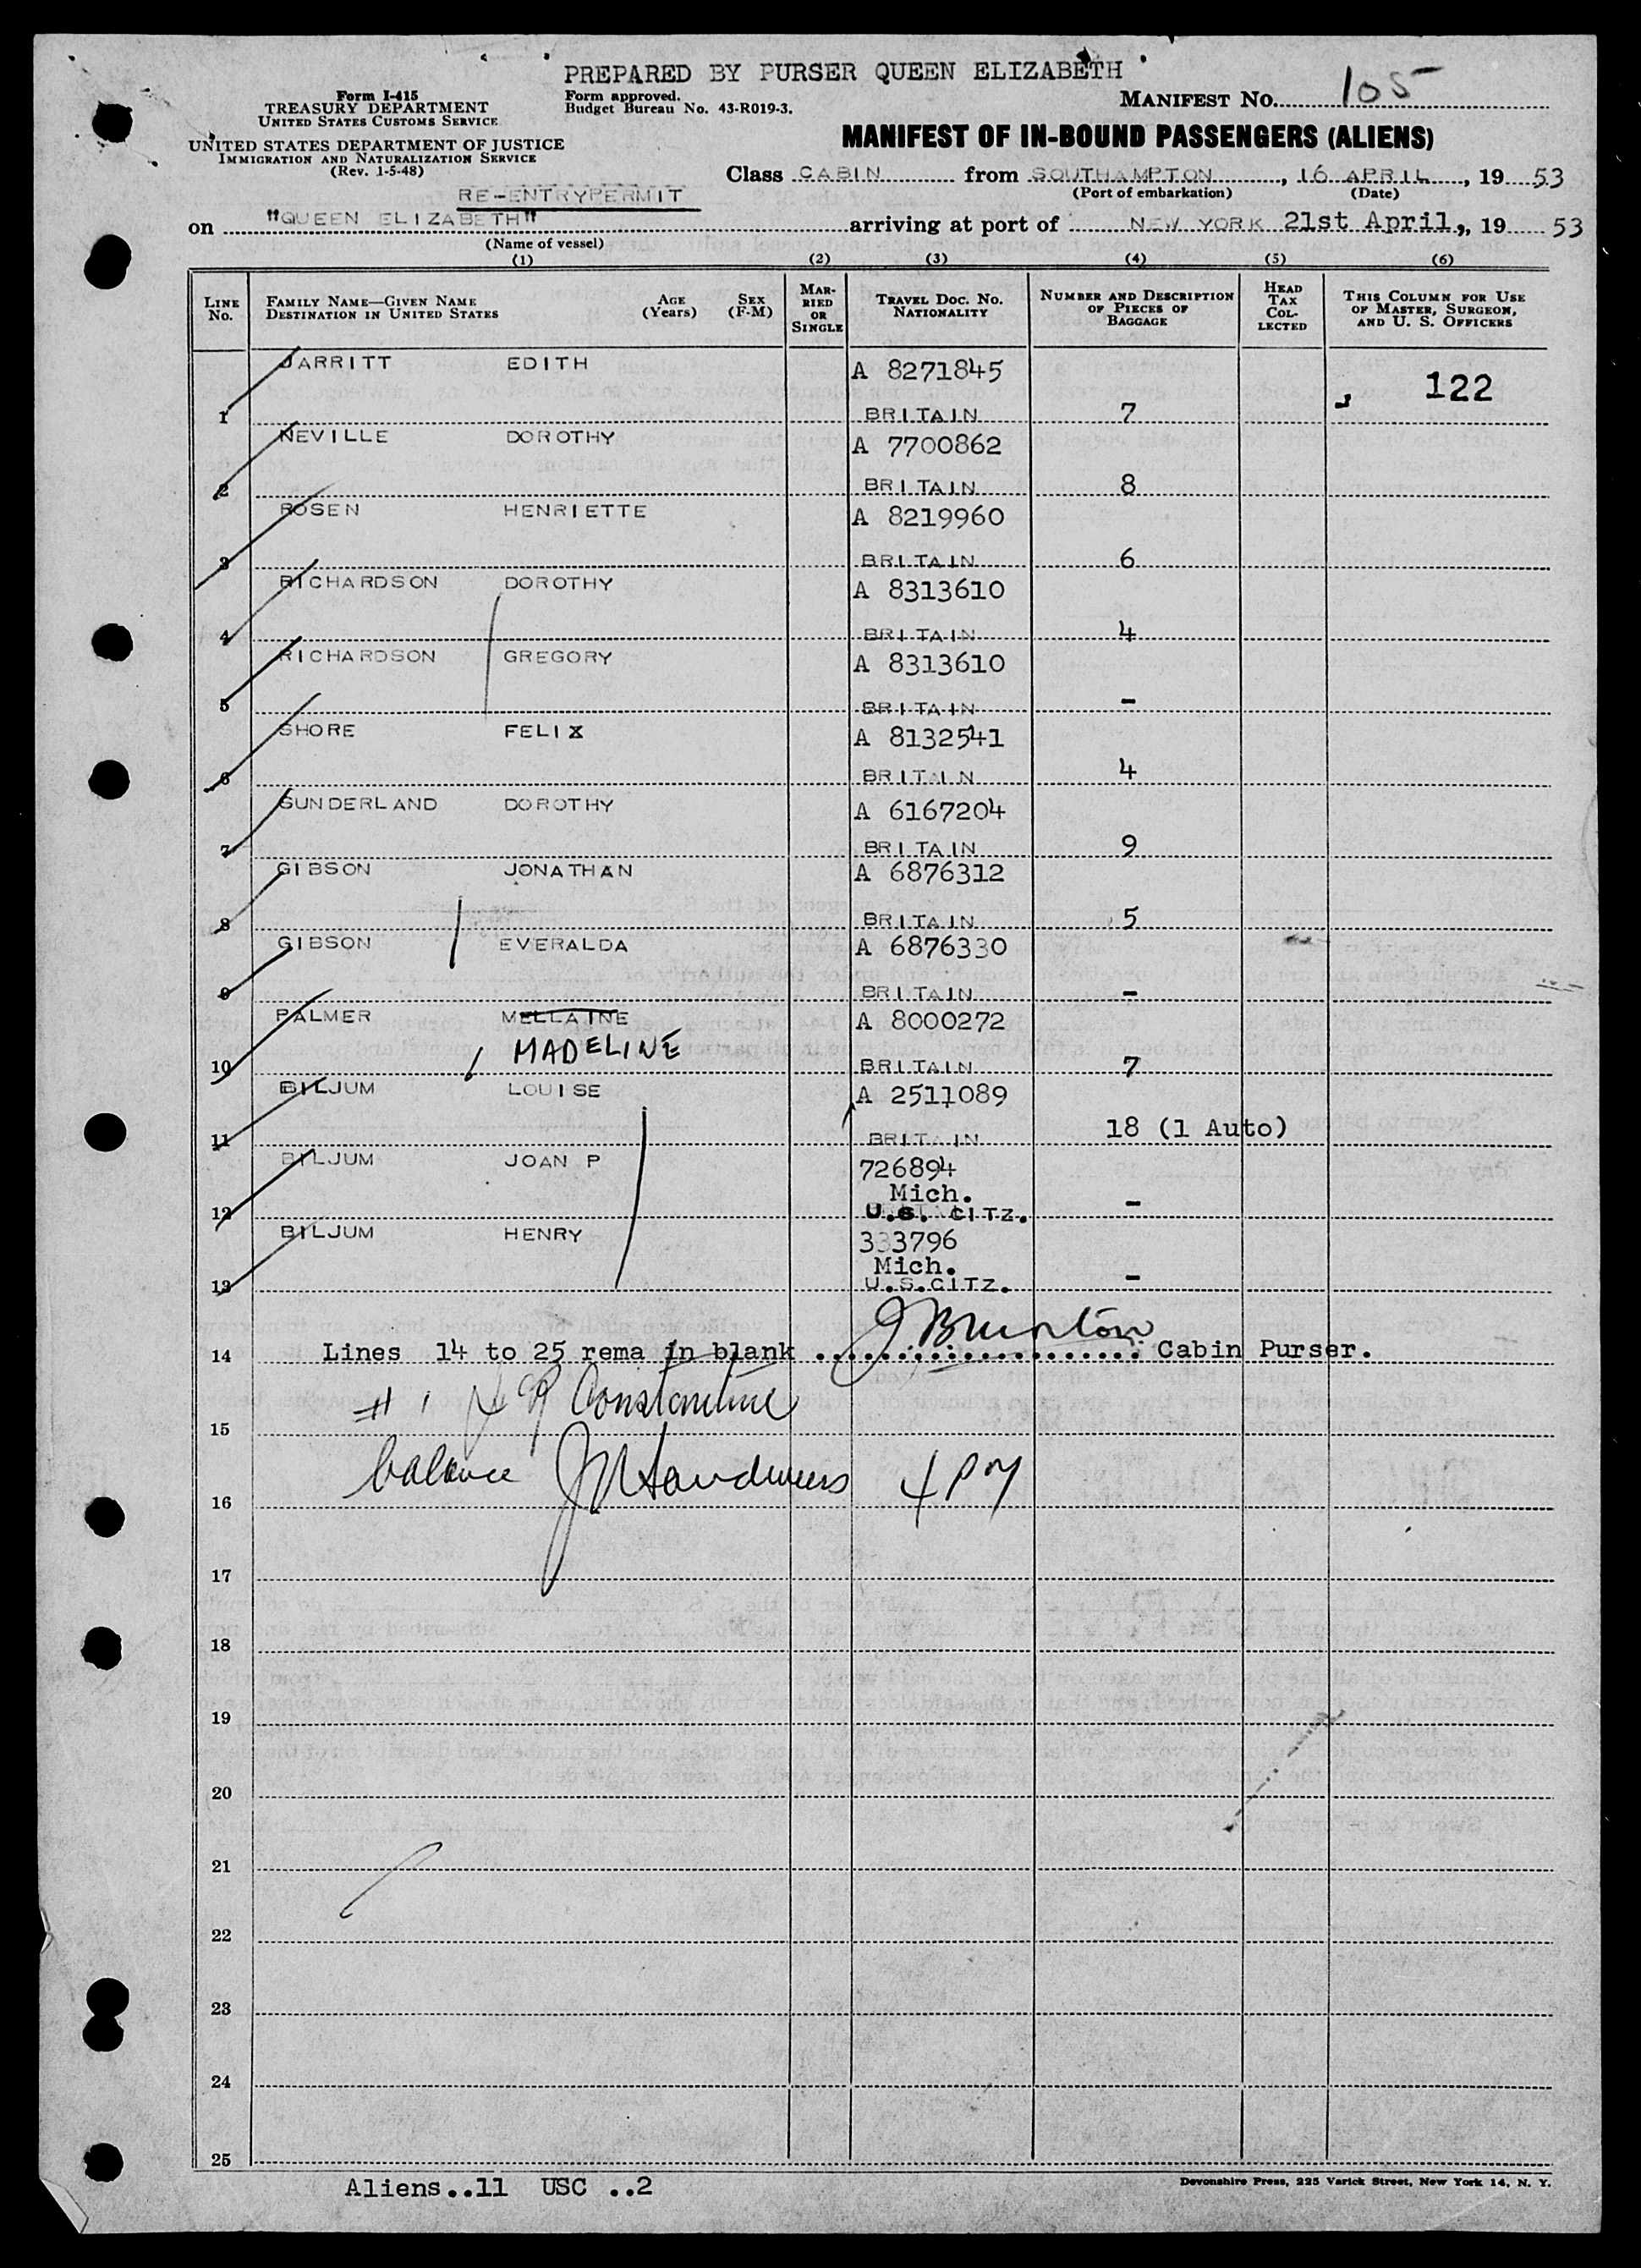 PREPARED BY PURSER QUEEN ELIZABETH
Form I-415
TREASURY DEPARTMENT
UNITED STATES CUSTOMS SERVICE
Form approved.
Budget Bureau No. 43-R019-3.
MANIFEST NO. 105
UNITED STATES DEPARTMENT OF JUSTICE
IMMIGRATION AND NATURALIZATION SERVICE
(Rev. 1-5-48)
MANIFEST OF IN-BOUND PASSENGERS (ALIENS)
Class CABIN from SOUTHAMPTON, 16 APRIL, 19 53
(Port of embarkation) (Date)
RE-ENTRYPERMIT
on "QUEEN ELIZABETH" arriving at port of NEW YORK 21st April,, 19 53
(Name of vessel)
(1) (2) (3) (4) (5) (6)
LINE NO.
FAMILY NAME—GIVEN NAME
DESTINATION IN UNITED STATES
AGE (YEARS)
SEX (F-M)
MARRIED OR SINGLE
TRAVEL DOC. NO. NATIONALITY
NUMBER AND DESCRIPTION OF PIECES OF BAGGAGE
HEAD TAX COLLECTED
THIS COLUMN FOR USE OF MASTER, SURGEON, AND U. S. OFFICERS
JARRITT EDITH A 8271845 122
1 BRITAIN 7
NEVILLE DOROTHY A 7700862
2 BRITAIN 8
ROSEN HENRIETTE A 8219960
3 BRITAIN 6
RICHARDSON DOROTHY A 8313610
4 BRITAIN 4
RICHARDSON GREGORY A 8313610
5 BRITAIN -
SHORE FELIX A 8132541
6 BRITAIN 4
SUNDERLAND DOROTHY A 6167204
7 BRITAIN 9
GIBSON JONATHAN A 6876312
8 BRITAIN 5
GIBSON EVERALDA A 6876330
9 BRITAIN -
PALMER MELLAINE A 8000272
MADELINE
10 BRITAIN 7
BILJUM LOUISE A 2511089
11 BRITAIN 18 (1 Auto)
BILJUM JOAN P 726894
Mich.
12 U.S. CITZ. -
BILJUM HENRY 333796
Mich.
13 U.S.CITZ. -
14 Lines 14 to 25 rema in blank J Brunton Cabin Purser.
# 1 Constantine
15
balance
16
17
18
19
20
21
22
23
24
25
Aliens..11 USC ..2
Devonshire Press, 225 Varick Street, New York 14, N. Y.